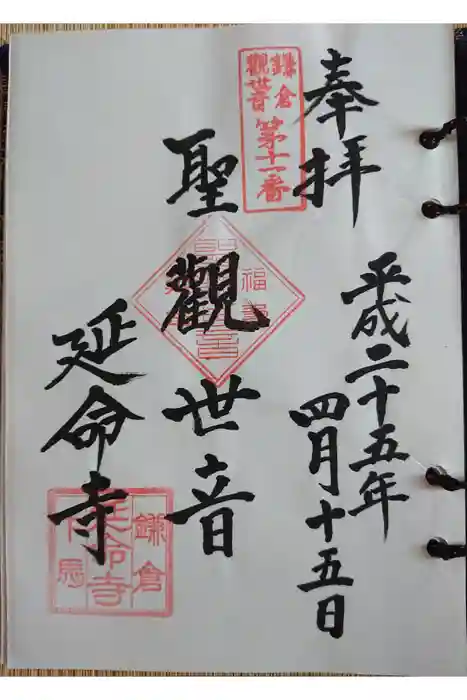 奉拝
平成二十五年
四月十五日
鎌倉
觀世音
第十一番
聖觀世音
福壽
延命寺
鎌倉
延命寺